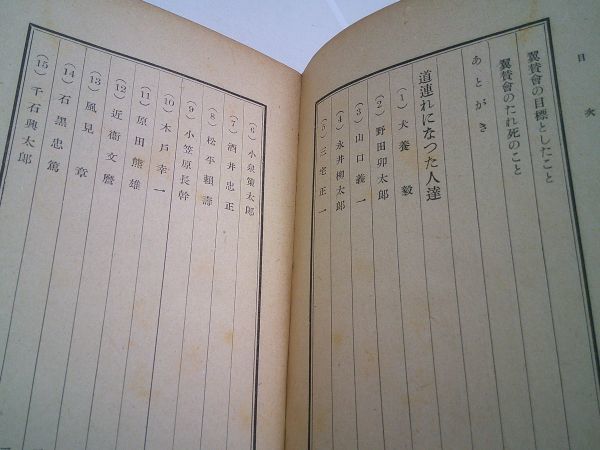 目次
翼賛會の目標としたこと
翼賛會のたれ死のこと
あとがき
道連れになつた人達
(1) 犬養毅
(2) 野田卯太郎
(3) 山口義一
(4) 永井柳太郎
(5) 三宅正一
(6) 小泉策太郎
(7) 酒井忠正
(8) 松平賴壽
(9) 小笠原長幹
(10) 木戸幸一
(11) 原田熊雄
(12) 近衞文麿
(13) 風見章
(14) 石黒忠篤
(15) 千石興太郎